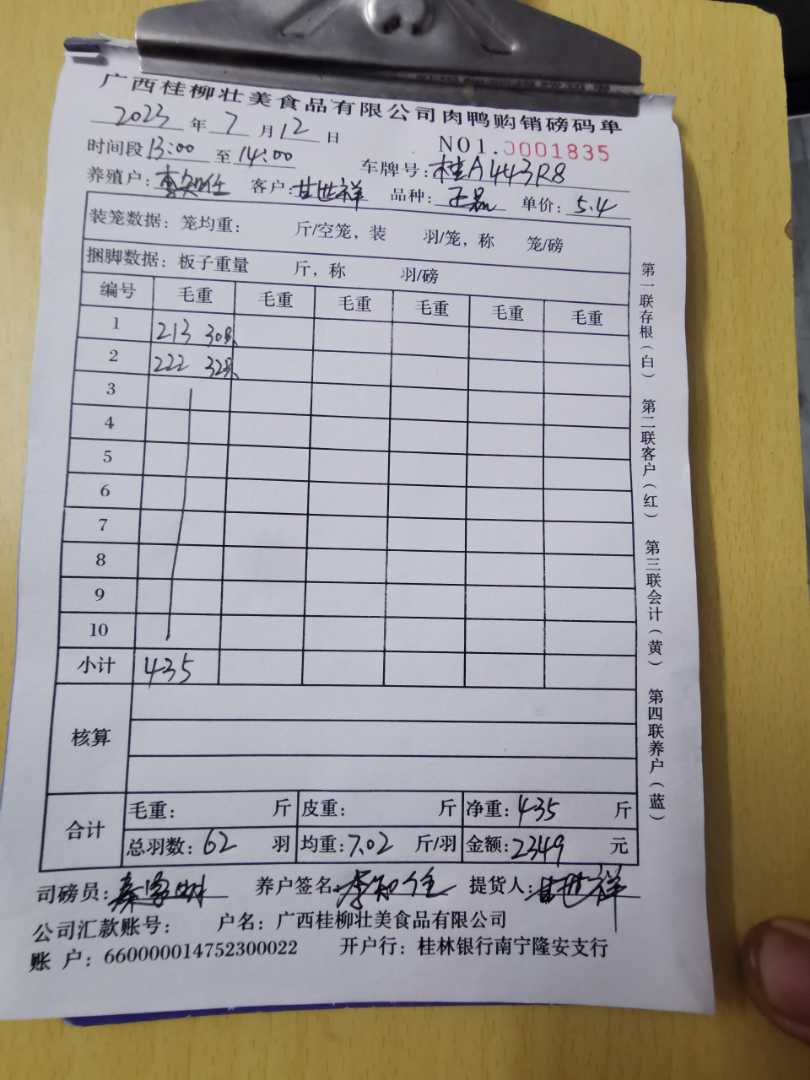 广西桂柳壮美食品有限公司肉鸭购销磅码单
2023 年 7 月 12 日 NO1.0001835
时间段 13:00 至 14:00 车牌号: 桂A443R8
养殖户: 李知任 客户: 甘世祥 品种: 正品 单价: 5.4
装笼数据: 笼均重: 斤/空笼, 装 羽/笼, 称 笼/磅
捆脚数据: 板子重量 斤, 称 羽/磅
编号 毛重 毛重 毛重 毛重 毛重 毛重
1 213 30只
2 222 32只
3
4
5
6
7
8
9
10
小计 435
核算
合计 毛重: 斤 皮重: 斤 净重: 435 斤
总羽数: 62 羽 均重: 7.02 斤/羽 金额: 2349 元
司磅员: 养户签名: 李知任 提货人: 甘世祥
公司汇款账号: 户名: 广西桂柳壮美食品有限公司
账 户: 660000014752300022 开户行: 桂林银行南宁隆安支行
第一联存根(白) 第二联客户(红) 第三联会计(黄) 第四联养户(蓝)